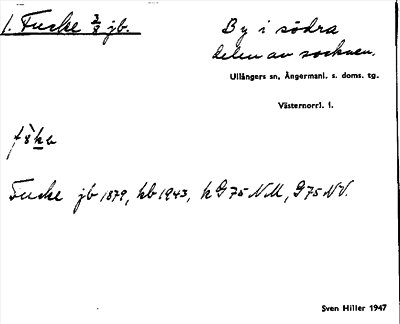 1. Fucke 3/8 jb.
By i södra
delen av socknen.
Ullångers sn, Ångermanl. s. doms. tg.
Västernorrl. l.
Fucke jb 1879, kb 1943, k G75 NM, G75 NV.
Sven Hiller 1947